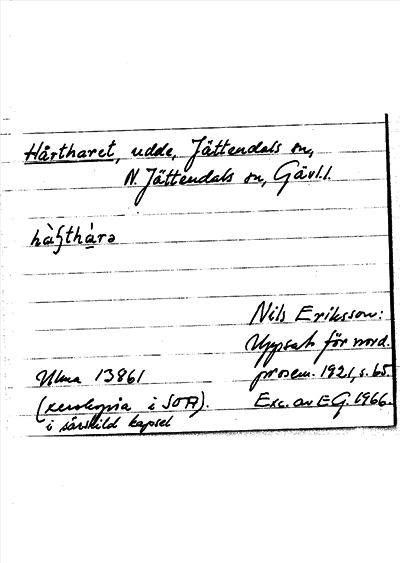 Hårtharet, udde, Jättendals sn,
N. Jättendals sn, Gävl.l.
hàʂthàrə
Nils Eriksson:
Uppsats för nord.
Ulma 13861 prosem. 1921, s. 65.
(xerokopia i SOA). Exc. av EG. 1966.
i särskild kapsel